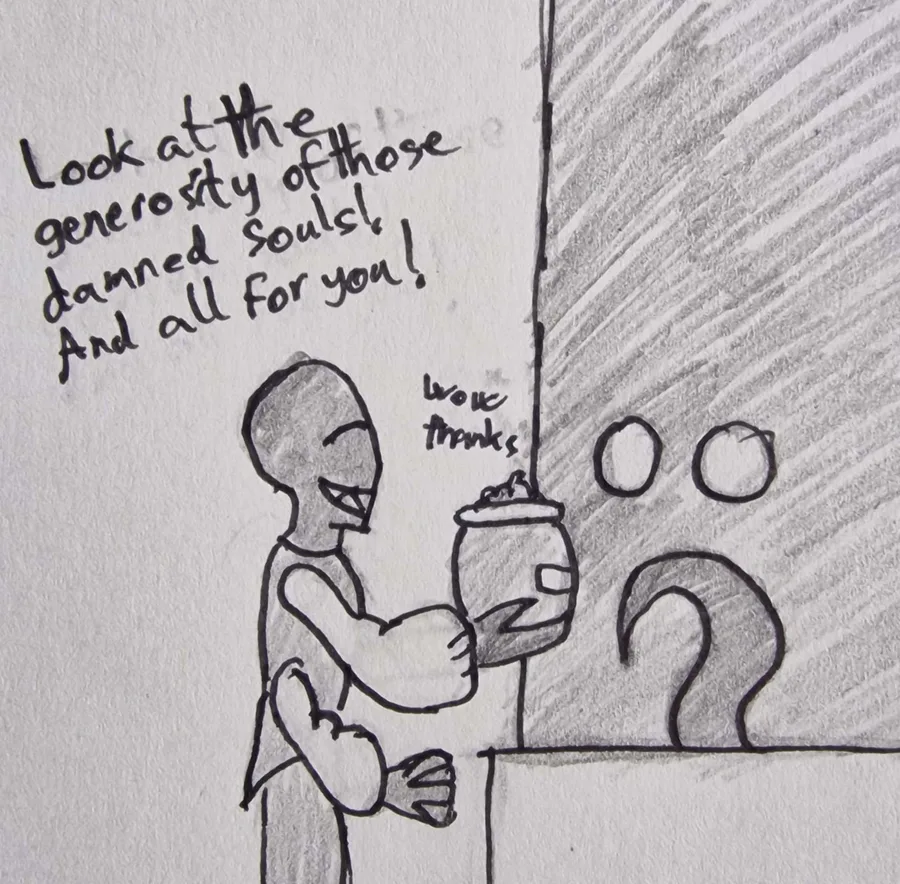 Look at the
generosity of those
damned souls!
And all for you!
wow
thanks